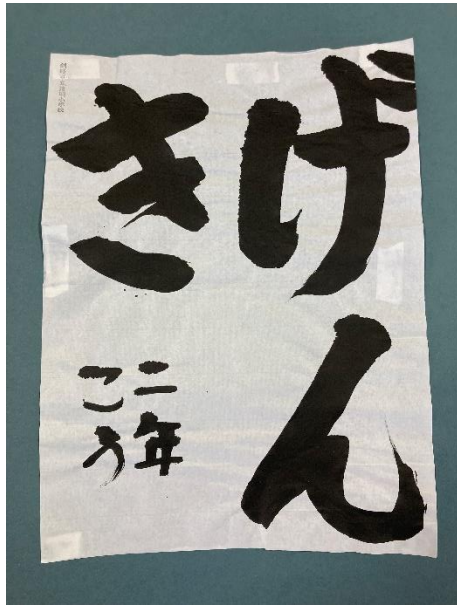 げん
き
二年
こう